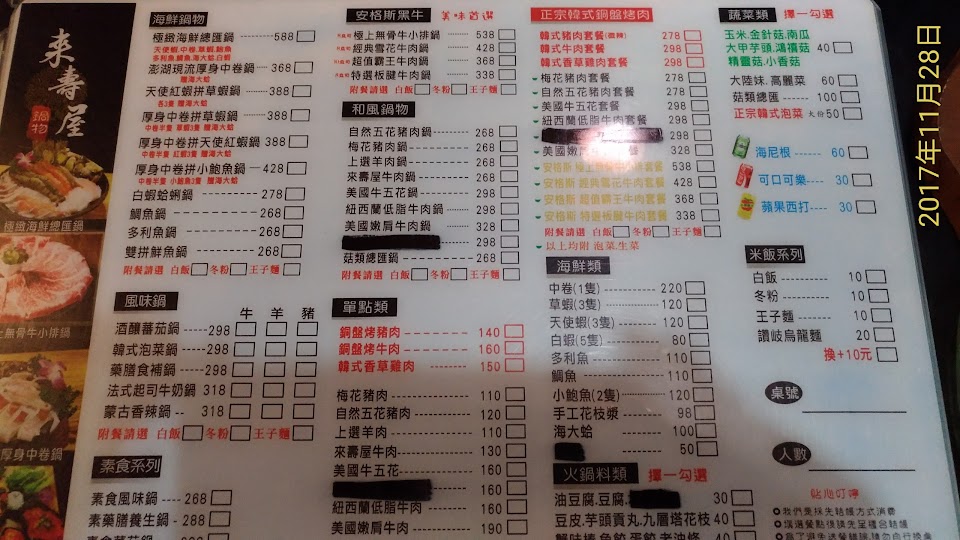 來壽屋
鍋物
極緻海鮮總匯鍋
上無骨牛小排鍋
厚身中卷鍋
海鮮鍋物
極緻海鮮總匯鍋 588
天使蝦.中卷.草蝦.鮑魚
多利魚.鯛魚.海大蛤.白蝦
澎湖現流厚身中卷鍋 368
隨海大蛤
天使紅蝦拼草蝦鍋 388
各3隻 隨海大蛤
厚身中卷拼草蝦鍋 388
中卷半隻 草蝦3隻 隨海大蛤
厚身中卷拼天使紅蝦鍋 388
中卷半隻 紅蝦3隻 隨海大蛤
厚身中卷拼小鮑魚鍋 428
中卷半隻 小鮑魚3隻 隨海大蛤
白蝦蛤蜊鍋 278
鯛魚鍋 268
多利魚鍋 268
雙拼鮮魚鍋 268
附餐請選 白飯 冬粉 王子麵
風味鍋 牛 羊 豬
酒釀蕃茄鍋 298
韓式泡菜鍋 298
藥膳食補鍋 298
法式起司牛奶鍋 318
蒙古香辣鍋 318
附餐請選 白飯 冬粉 王子麵
素食系列
素食風味鍋 268
素藥膳養生鍋 288
安格斯黑牛 美味首選
極上無骨牛小排鍋 538
經典雪花牛肉鍋 428
超值霸王牛肉鍋 368
特選板腱牛肉鍋 338
附餐請選 白飯 冬粉 王子麵
和風鍋物
自然五花豬肉鍋 268
梅花豬肉鍋 268
上選羊肉鍋 268
來壽屋牛肉鍋 268
美國牛五花鍋 298
紐西蘭低脂牛肉鍋 298
美國嫩肩牛肉鍋 328
298
菇類總匯鍋 268
附餐請選 白飯 冬粉 王子麵
單點類
銅盤烤豬肉 140
銅盤烤牛肉 160
韓式香草雞肉 150
梅花豬肉 110
自然五花豬肉 120
上選羊肉 110
來壽屋牛肉 130
美國牛五花 160
160
紐西蘭低脂牛肉 160
美國嫩肩牛肉 190
正宗韓式銅盤烤肉
韓式豬肉套餐(微辣) 278
韓式牛肉套餐 298
韓式香草雞肉套餐 298
梅花豬肉套餐 278
自然五花豬肉套餐 278
美國牛五花套餐 298
紐西蘭低脂牛肉套餐 298
298
美國嫩肩牛肉套餐 328
安格斯 極上無骨牛小排套餐 538
安格斯 經典雪花牛肉套餐 428
安格斯 超值霸王牛肉套餐 368
安格斯 特選板腱牛肉套餐 338
附餐請選 白飯 冬粉 王子麵
以上均附 泡菜.生菜
海鮮類
中卷(1隻) 220
草蝦(3隻) 120
天使蝦(3隻) 120
白蝦(5隻) 80
多利魚 110
鯛魚 110
小鮑魚(2隻) 120
手工花枝漿 98
海大蛤 100
50
火鍋料類 擇一勾選
油豆腐.豆腐. 30
豆皮.芋頭貢丸.九層塔花枝 40
蟹味棒.魚餃.蛋餃.老油條
蔬菜類 擇一勾選
玉米.金針菇.南瓜
大甲芋頭.鴻禧菇 40
精靈菇.小香菇
大陸妹.高麗菜 60
菇類總匯 100
正宗韓式泡菜 大份 50
海尼根 60
可口可樂 30
蘋果西打 30
米飯系列
白飯 10
冬粉 10
王子麵 10
讚岐烏龍麵 20
換+10元
桌號
人數
貼心叮嚀
我們是採先結帳方式消費
填選餐點後請先至櫃台結帳
2017年11月28日